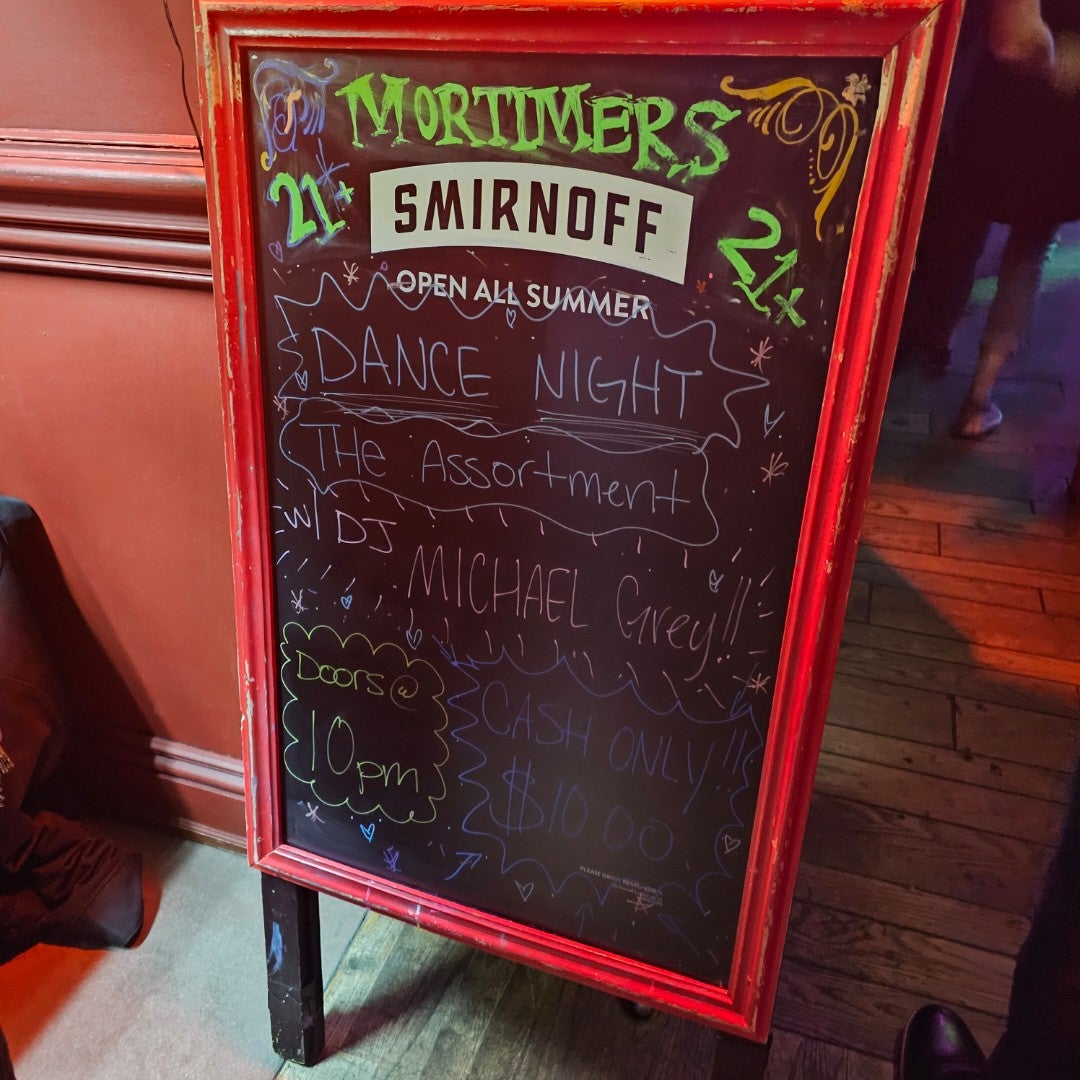 MORTIMERS
21+
SMIRNOFF
21+
OPEN ALL SUMMER
DANCE NIGHT
THe Assortment
w/ DJ
MICHAEL Grey!!
Doors @
10pm
CASH ONLY!!
$10.00
PLEASE DRINK RESPONSIBLY